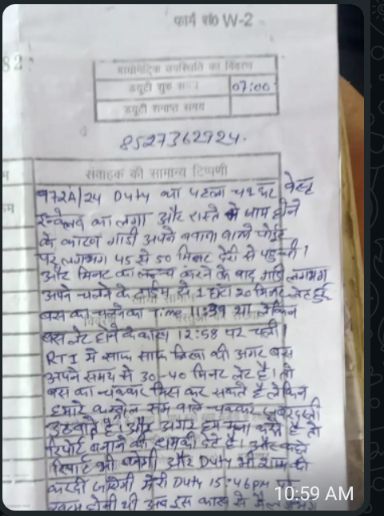 फार्म सं० W-2
बायोमेट्रिक उपस्थिति का विवरण
ड्यूटी शुरू समय 07:00
ड्यूटी समाप्त समय
8527362724.
संवाहक की सामान्य टिप्पणी
972A/24 Duty का पहला चक्कर
का लगा और रास्ते में जाम होने
के कारण गाडी अपने बताये वाले पोईंट
पर लगभग 45 से 50 मिनट देरी से पहुंची।
और मिनट का लन्च करने के बाद गाडी लगभग
अपने चलने के टाईम से 1 घंटा 20 मिनट लेट हुई
बस का चलने का Time 11:39 था लेकिन
बस लेट होने के कारण 12:58 पर चली।
RTI में साफ साफ लिखा की अगर बस
अपने समय से 30-40 मिनट लेट है। तो
बस का चक्कर मिस कर सकते है लेकिन
हमारे कन्ट्रोल रूम वाले चक्कर जबरदस्ती
उठवाते है। और अगर हम मना करते है तो
रिपोर्ट बनाने की धमकी देते है। और कहते
रिपोर्ट भी बनेगी और Duty भी शाम की
करदी जायेगी मेरी Duty 15:46 pm पर
खत्म होनी थी अब इस कारण से
10:59 AM